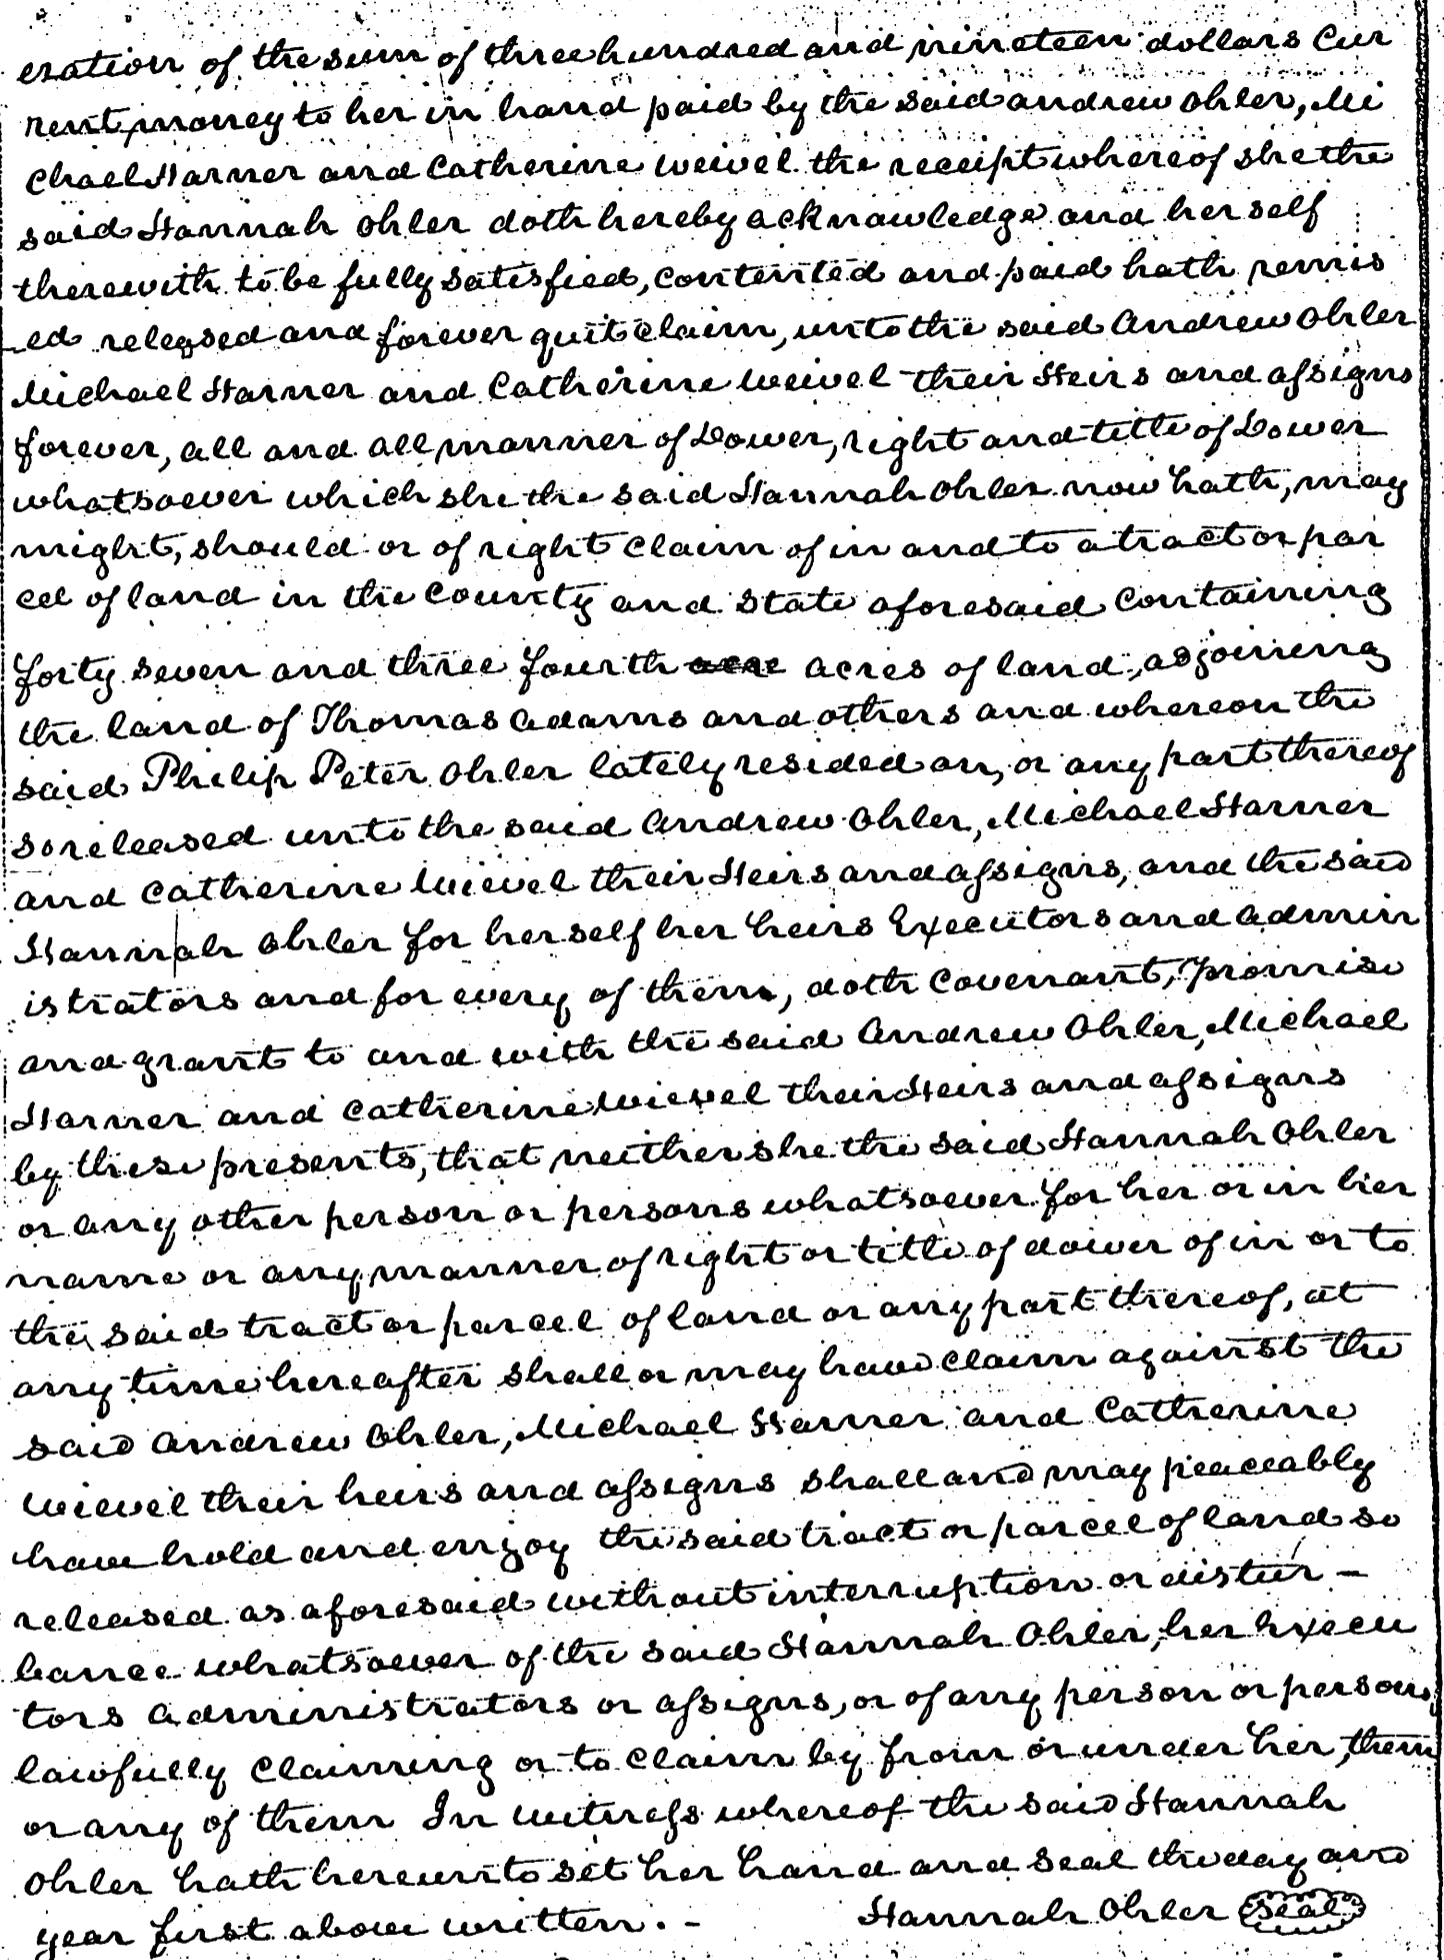 eration of the sum of three hundred and nineteen dollars Cur
rent money to her in hand paid by the said andrew Ohler, Mi
chael Harner and Catherine Weivel the receipt whereof she the
said Hannah Ohler doth hereby acknowledge and herself
therewith to be fully satisfied, contented and paid hath remis
-ed released and forever quit claim, unto the said Andrew Ohler
Michael Harner and Catherine Weivel their Heirs and assigns
forever, all and all manner of Dower, right and title of Dower
whatsoever which she the said Hannah Ohler now hath, may
might, should or of right claim of in and to a tract or par
cel of land in the County and State aforesaid Containing
forty seven and three fourth acre acres of land, adjoining
the land of Thomas Adams and others and whereon the
said Philip Peter Ohler lately resided on, or any part thereof
so released unto the said Andrew Ohler, Michael Harner
and Catherine Wievel their Heirs and assigns, and the said
Hannah Ohler for herself her heirs Executors and admin
istrators and for every of them, doth Covenant, promise
and grant to and with the said Andrew Ohler, Michael
Harner and Catherine Wievel their Heirs and assigns
by these presents, that neither she the said Hannah Ohler
or any other person or persons whatsoever for her or in her
name or any manner of right or title of dower of in or to
the said tract or parcel of land or any part thereof, at
any time hereafter shall or may have claim against the
said Andrew Ohler, Michael Harner and Catherine
Wievel their heirs and assigns shall and may peaceably
have hold and enjoy the said tract or parcel of land so
released as aforesaid without interruption or distur -
bance whatsoever of the said Hannah Ohler, her Execu
tors administrators or assigns, or of any person or persons,
lawfully claiming or to claim by from or under her, them
or any of them In witness whereof the said Hannah
Ohler hath hereunto set her hand and seal the day and
year first above written. - Hannah Ohler Seal